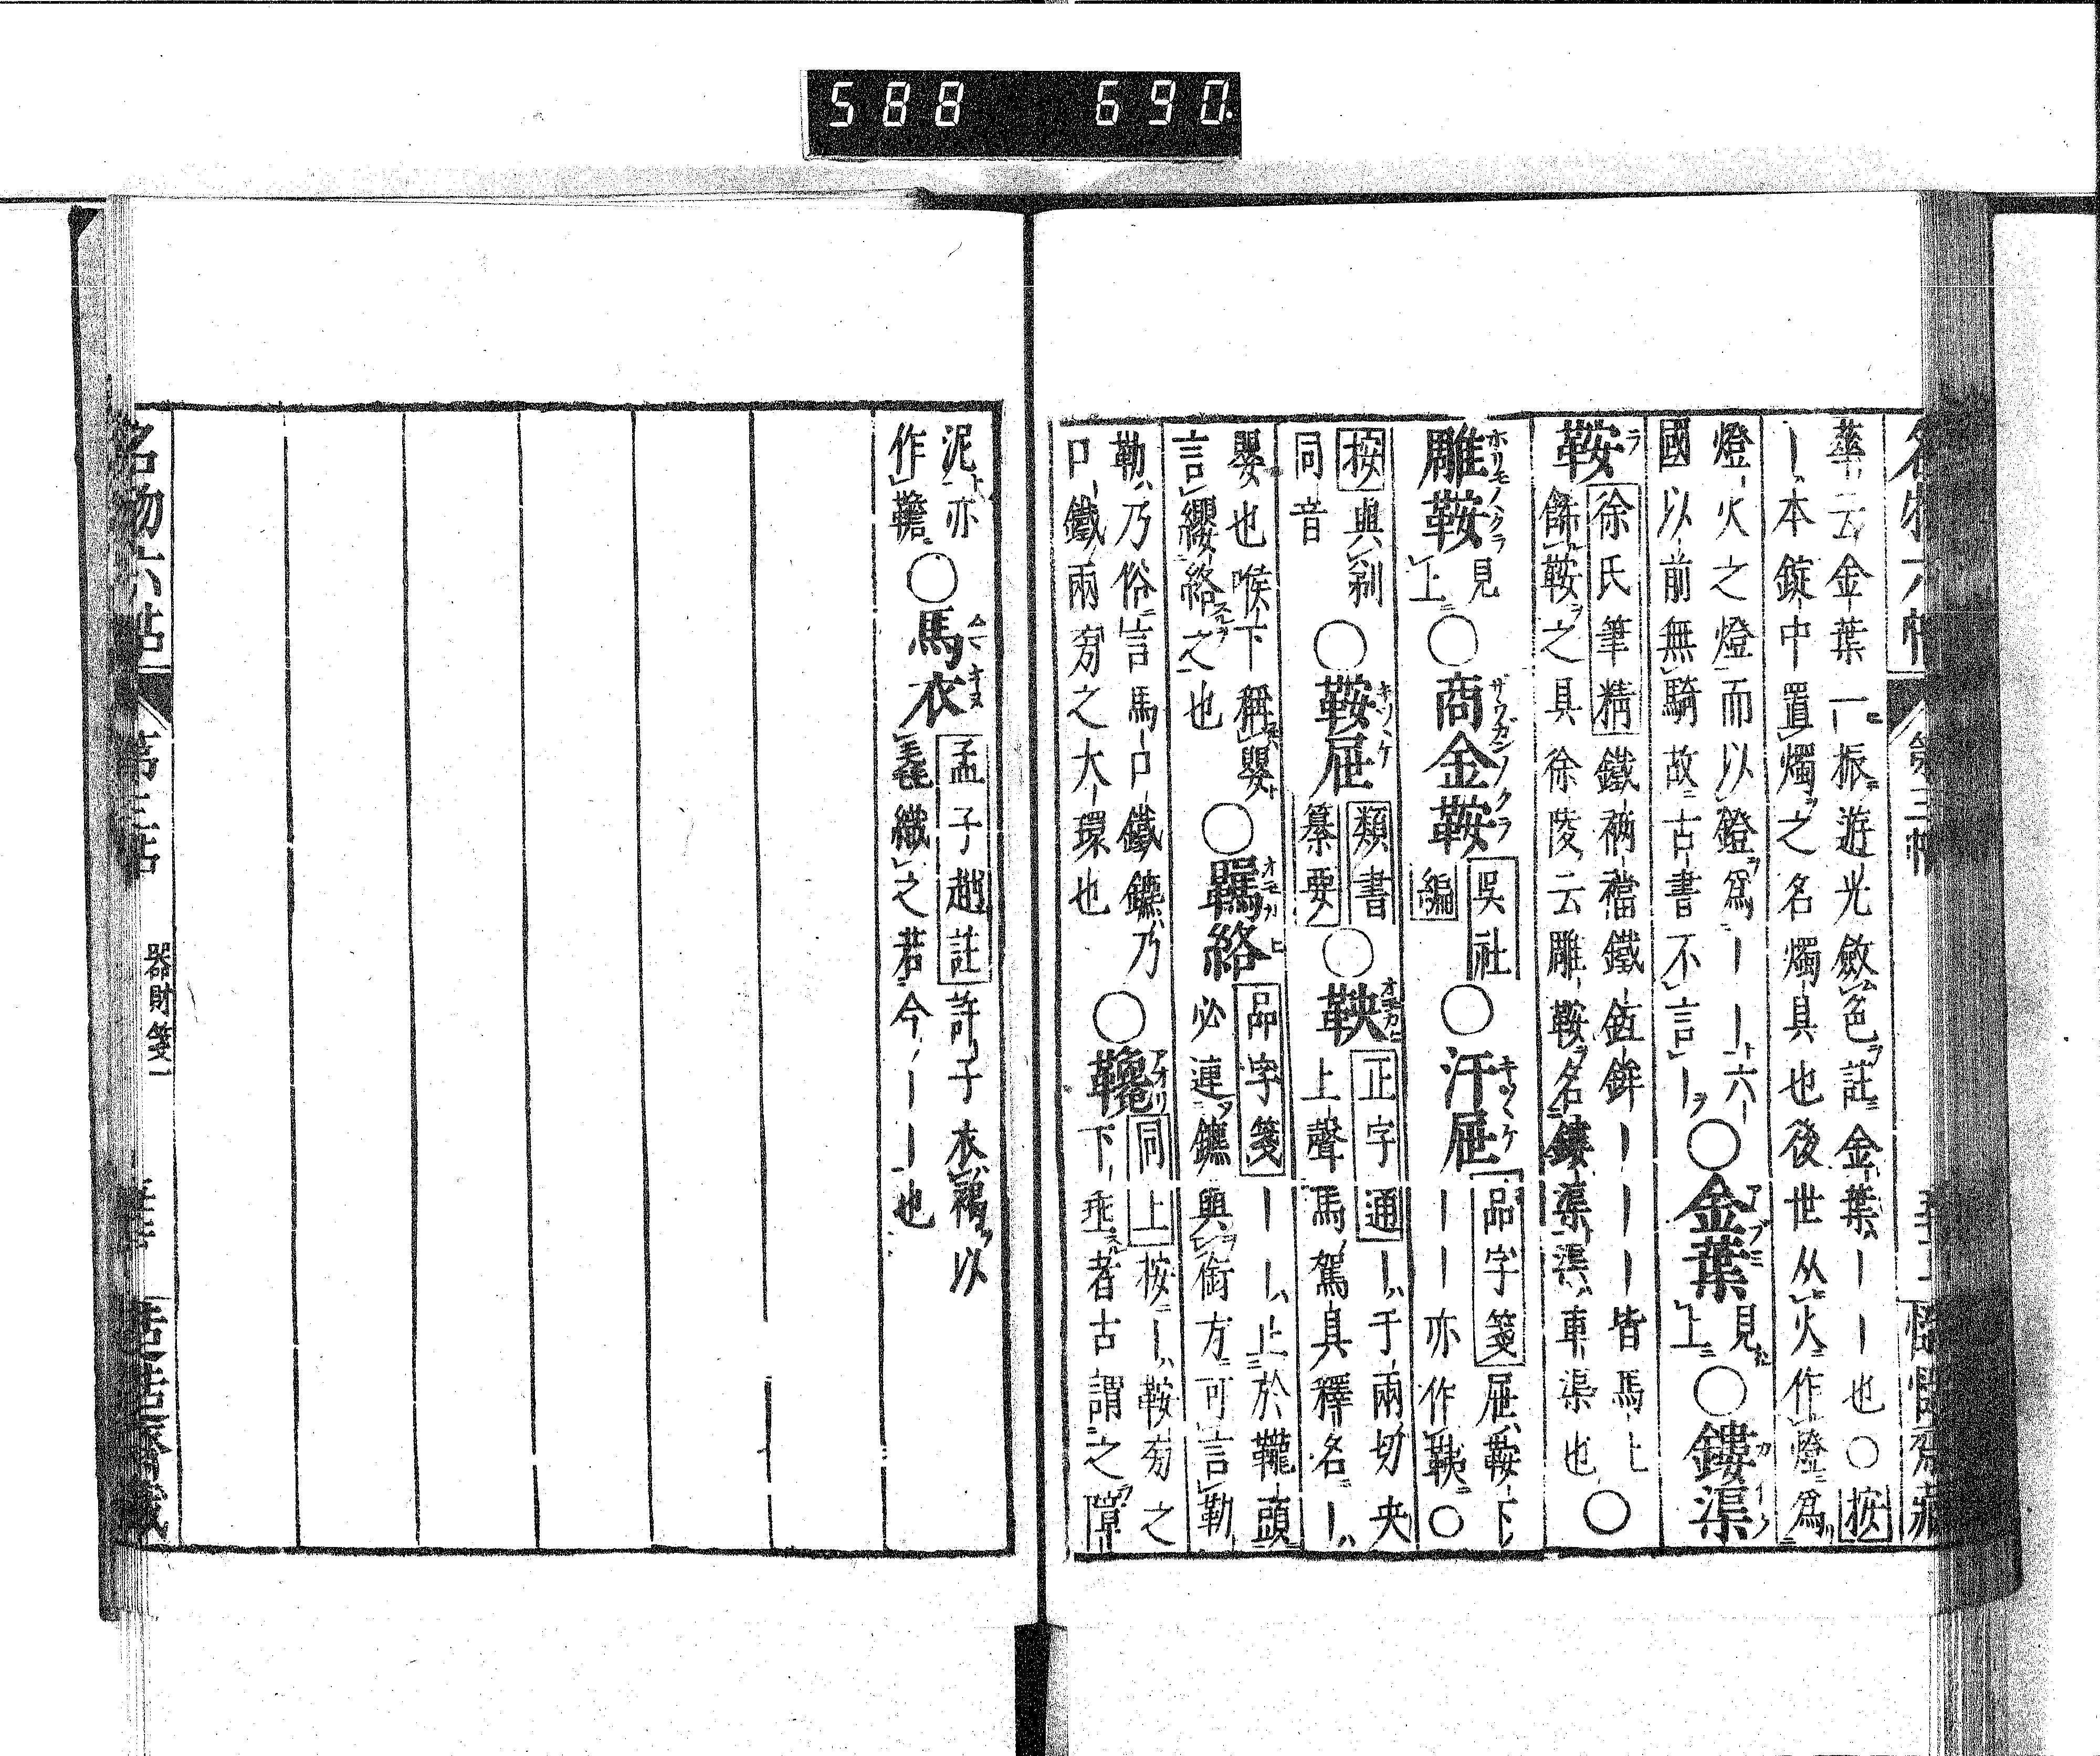 588 690
名物六帖 第三帖
華云金葉一振遊光斂色註金葉｜｜也〇按
｜本錠中置燭之名燭具也後世从火作燈爲
燈火之燈而以鐙爲｜｜六｜
國以前無騎故古書不言｜
〇金葉 見上 〇鏤渠
鞍 徐氏筆精 鐵裲襠鐵 鉾｜｜｜皆馬上
飾鞍之具徐陵云雕鞍名鏤渠渠車渠也 〇
雕鞍 見上 〇商金鞍 吳社編 〇汗屜 品字箋 屜鞍下
｜｜亦作 〇
按與 同音 〇鞍屜 類書纂要 〇鞅 正字通 ｜于兩切央
上聲馬駕具釋名｜
嬰也喉下稱嬰
言纓絡之也
〇羈絡 品字箋 ｜｜上於 頭
必連鑣與銜方可言勒
勒乃俗言馬口鐵鑣乃
口鐵兩旁之大環也
〇 同上 按｜鞍旁之
下垂者古謂之障
泥亦
作韂
〇馬衣 孟子趙註 許子衣褐以
毳織之若今｜｜也
名物六帖 第三帖 器財箋一